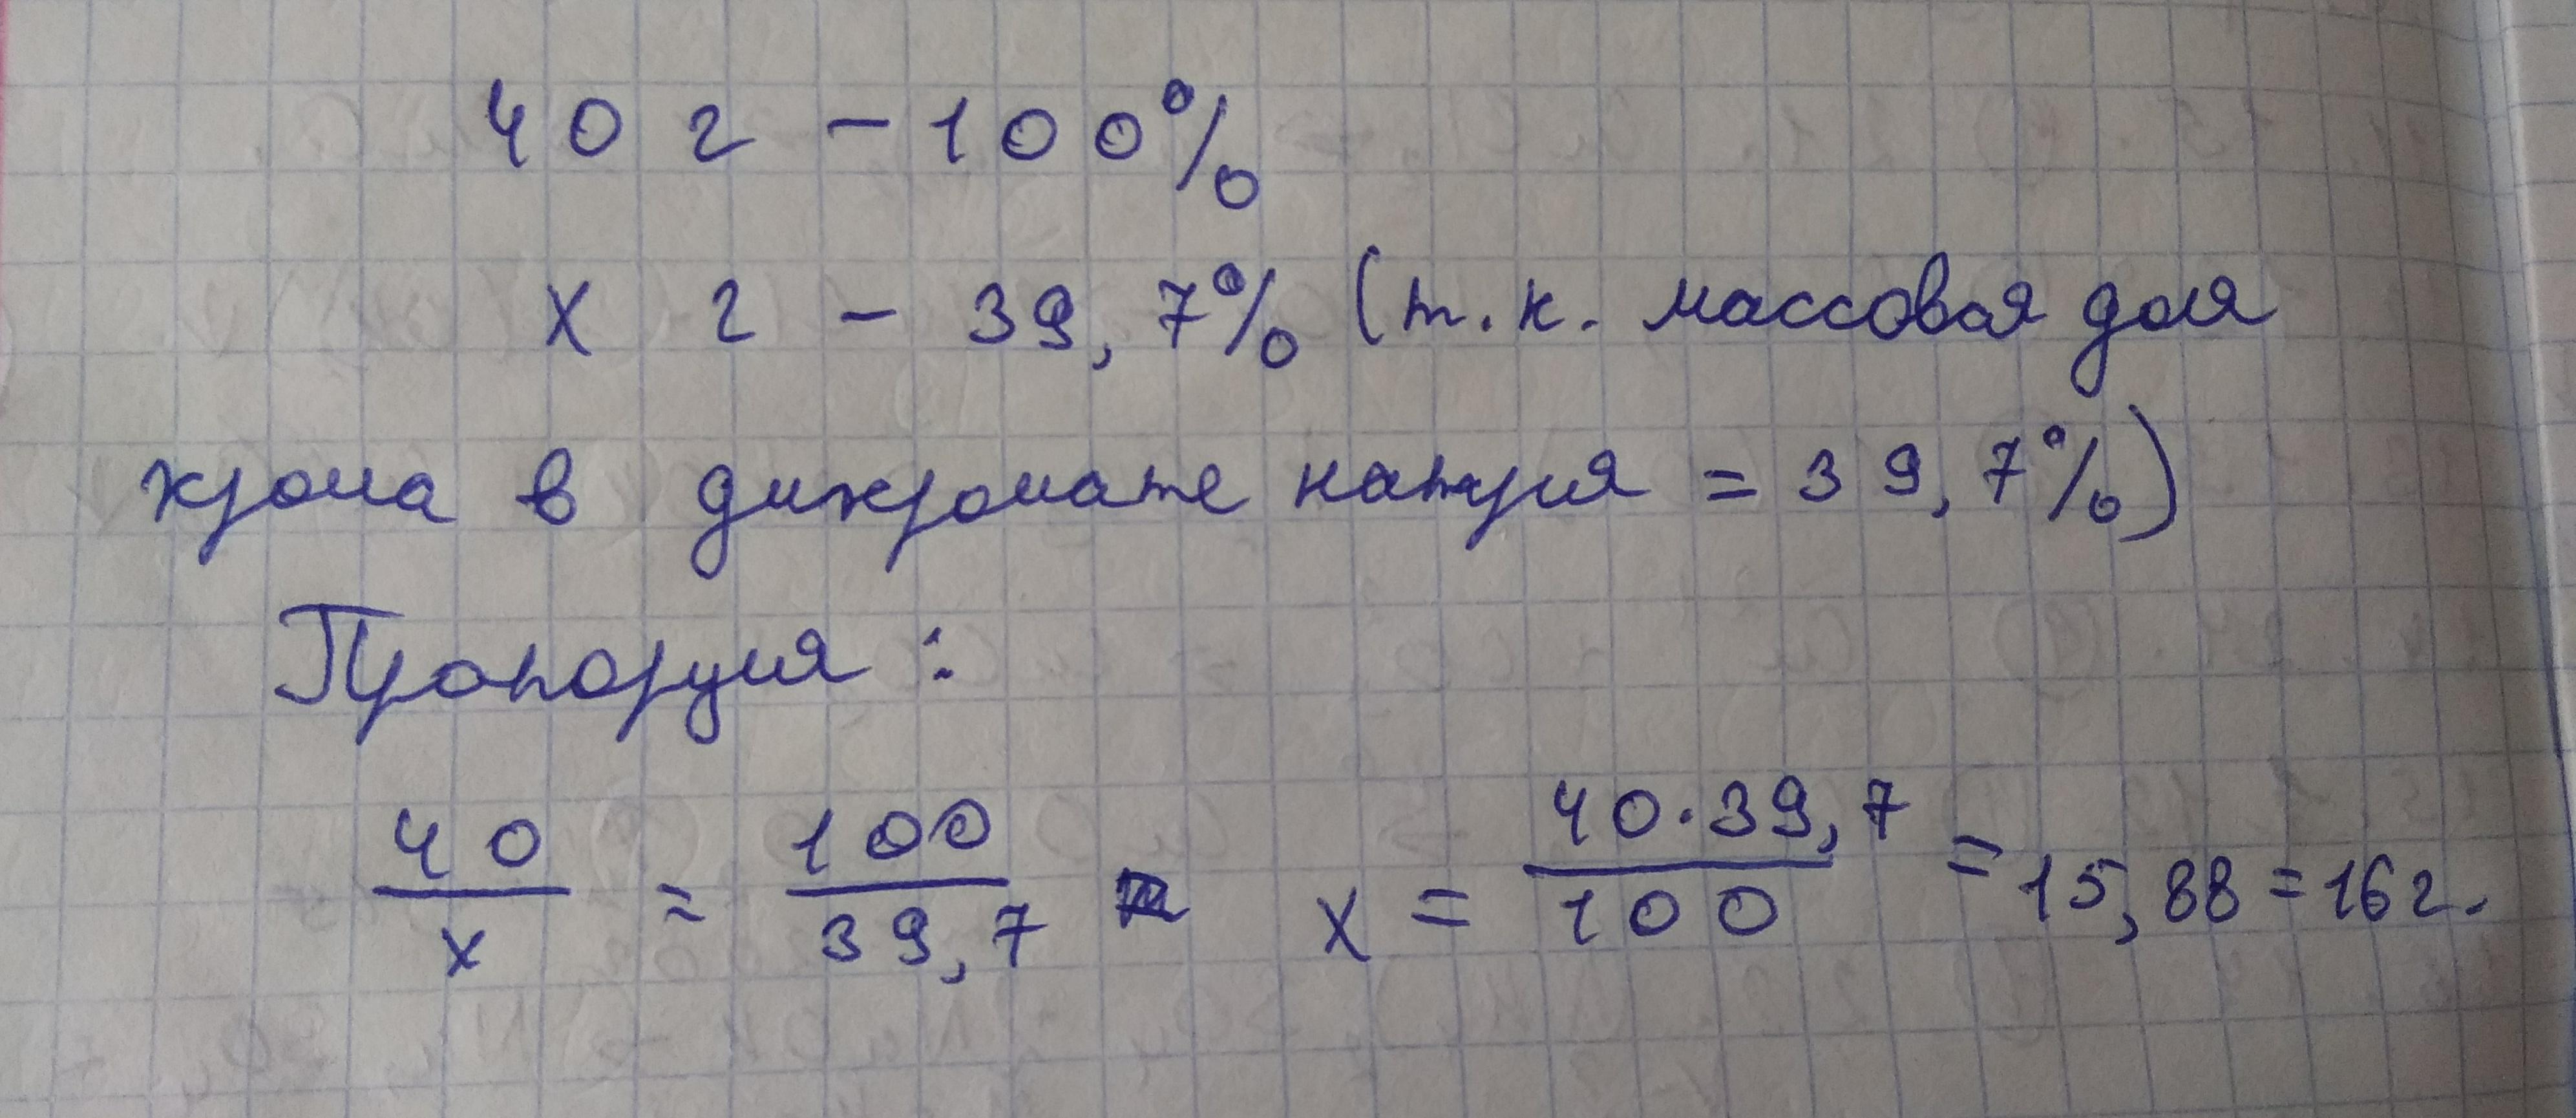 40 г – 100%
x г – 39,7% (т.к. массовая доля
хрома в дихромате натрия = 39,7%)
Пропорция:
40/x = 100/39,7 x = 40·39,7/100 = 15,88 = 16 г.